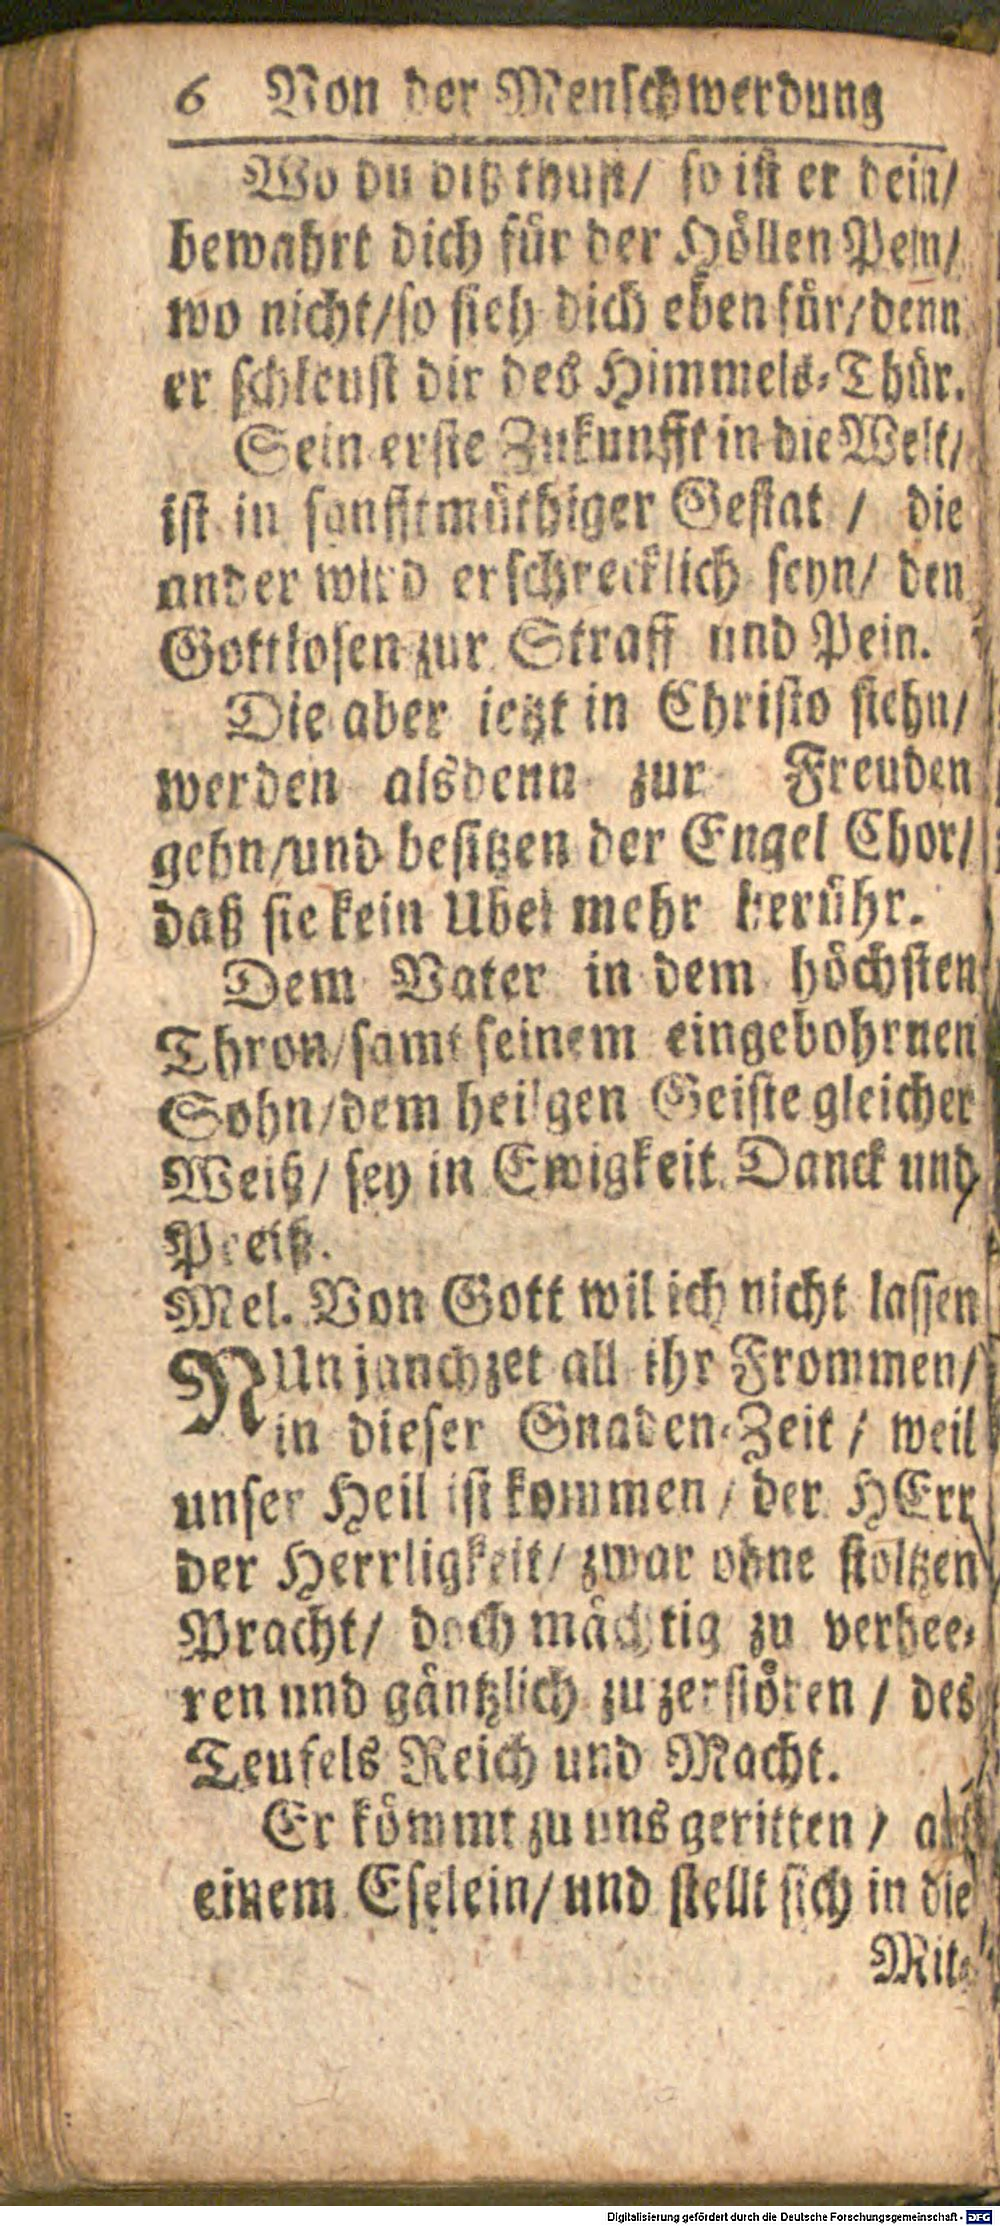 6 Von der Menschwerdung
Wo du diß thust/ so ist er dein/
bewahrt dich für der Höllen Pein/
wo nicht/so sieh dich eben für/denn
er schleust dir des Himmels-Thür.
Sein erste Zukunfft in die Welt/
ist in sanfftmüthiger Gestat / die
ander wird erschrecklich seyn/ den
Gottlosen zur Straff und Pein.
Die aber ietzt in Christo stehn/
werden alsdenn zur Freuden
gehn/und besitzen der Engel Chor/
daß sie kein Ubel mehr berühr.
Dem Vater in dem höchsten
Thron/samt seinem eingebohrnen
Sohn/dem heilgen Geiste gleicher
Weiß/ sey in Ewigkeit Danck und
Preiß.
Mel. Von Gott wil ich nicht lassen
NUn jauchzet all ihr Frommen/
in dieser Gnaden-Zeit / weil
unser Heil ist kommen / der HErr
der Herrligkeit/ zwar ohne stoltzen
Pracht/ doch mächtig zu verhee-
ren und gäntzlich zu zerstören / des
Teufels Reich und Macht.
Er kömmt zu uns geritten / auf
einem Eselein/ und stellt sich in die
Mit-
Digitalisierung gefördert durch die Deutsche Forschungsgemeinschaft - DFG